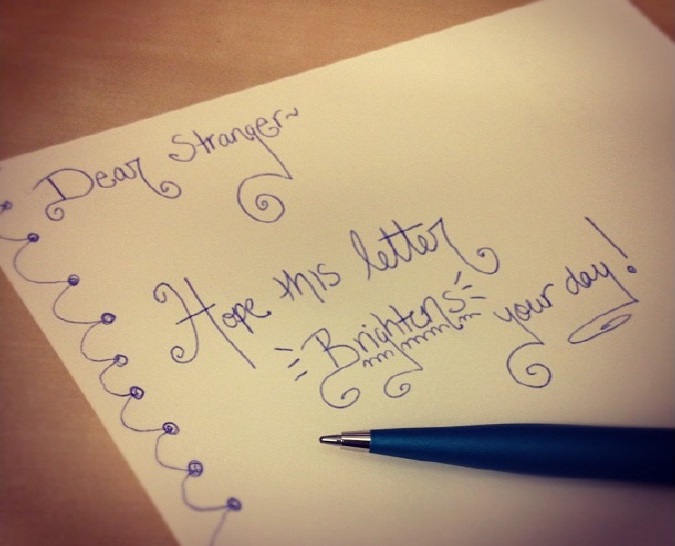 Dear Stranger~
Hope this letter
Brightens your day!